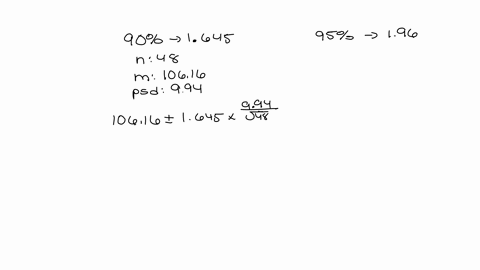 90% → 1.645
95% → 1.96
n: 48
m: 106.16
psd: 9.94
106.16 ± 1.645 × 9.94/√48